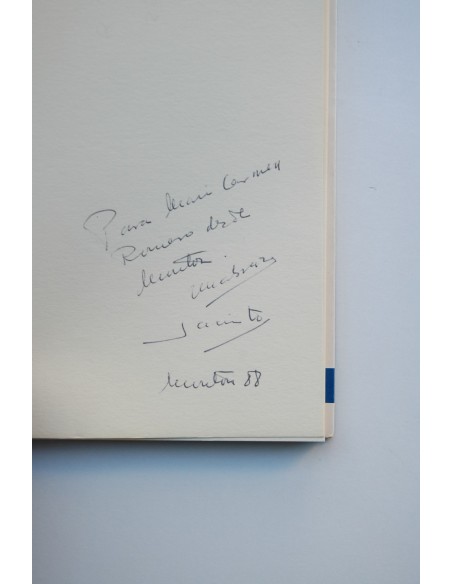 Para Mari Carmen
Romero desde
Menton.
un abrazo
Jacinto
Menton 88